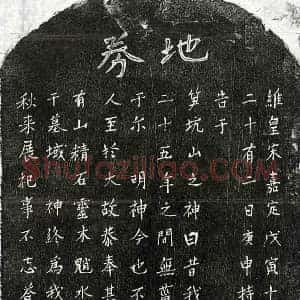 地券
維皇宋嘉定戊寅十
二十有二日庚申持
告于
坑山之神曰昔我
二十五年之間無
于尔 明神今也不
人至於大故恭奉其
有山精石靈木魅水
干墓域 神終為我
秋来展祀事不忘答
Shufaziliao.com